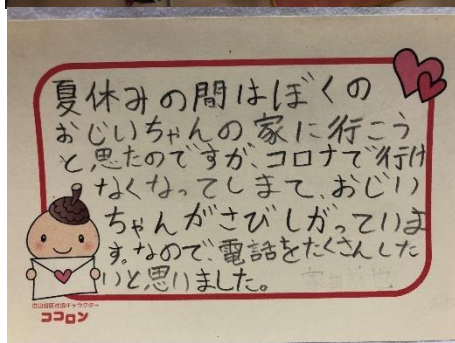 夏休みの間はぼくの
おじいちゃんの家に行こう
と思たのですが、コロナで行け
なくなってしまて、おじい
ちゃんがさびしがっていま
す。なので、電話をたくさんした
いと思いました。
ココロン